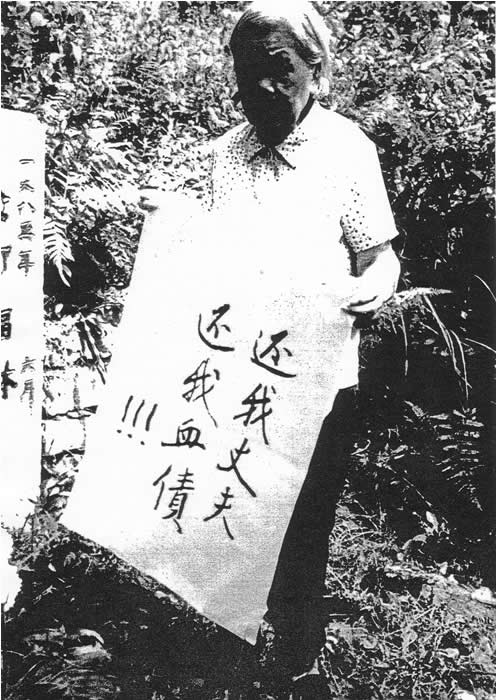 还我丈夫
还我血債
!!!
一九八五年 六月